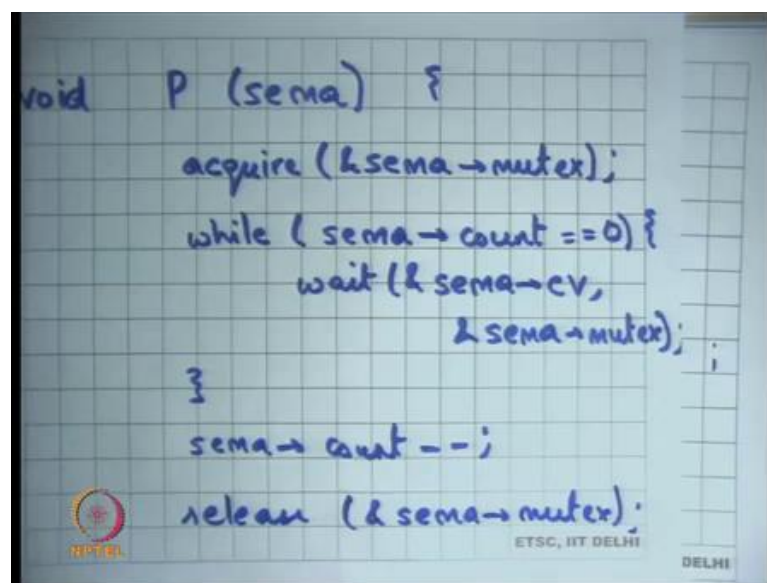 void P (sema) {
acquire (&sema→mutex);
while (sema→count ==0) {
wait (& sema→cv,
& sema→mutex);
;
}
sema→ count --;
release (& sema→mutex);
NPTEL
ETSC, IIT DELHI
DELHI